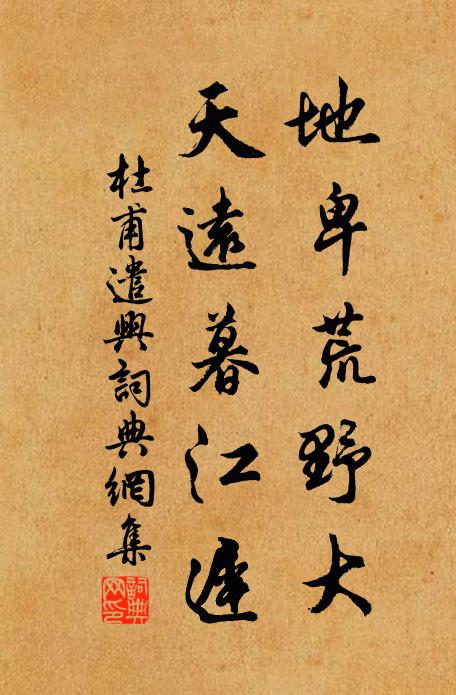 地卑荒野大
天遠暮江遲
杜甫遣興詞典網集
詞典網印